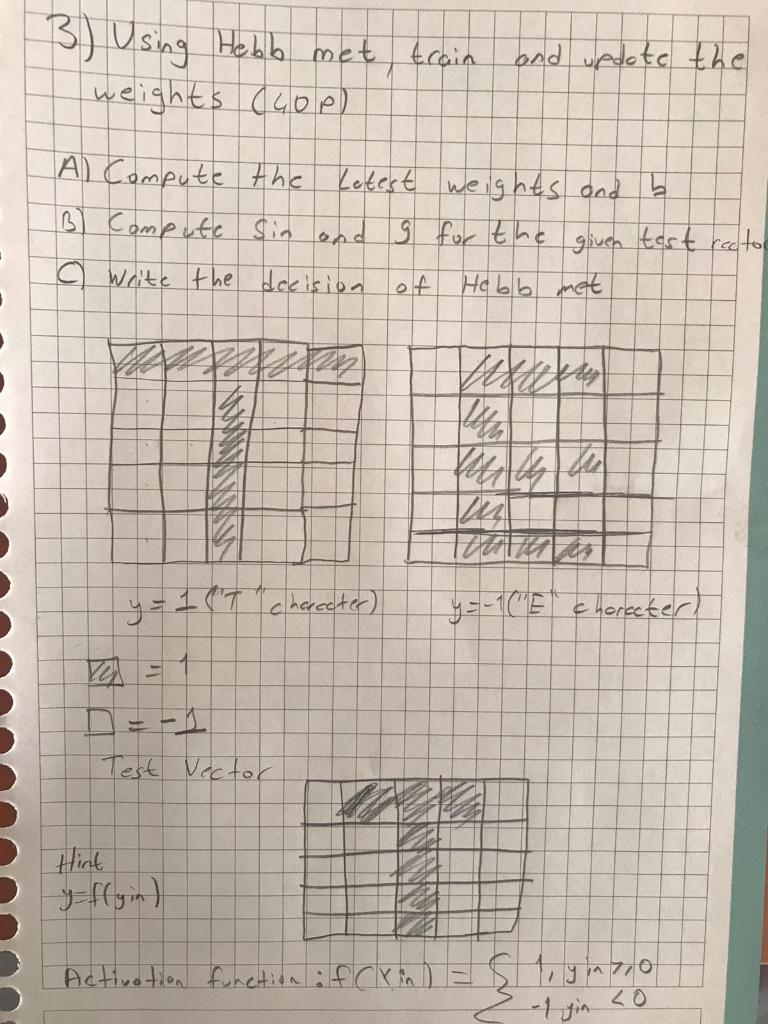 3) Using Hebb met, train and update the
weights (40p)
A) Compute the Latest weights and b
B) Compute Sin and y for the given test vector
C) Write the decision of Hebb met
y=1 ("T" character)
y=-1 ("E" character)
= 1
= -1
Test Vector
Hint
y=f(yin)
Activation function : f(Yin) = { 1, yin ≥ 0
-1 yin < 0